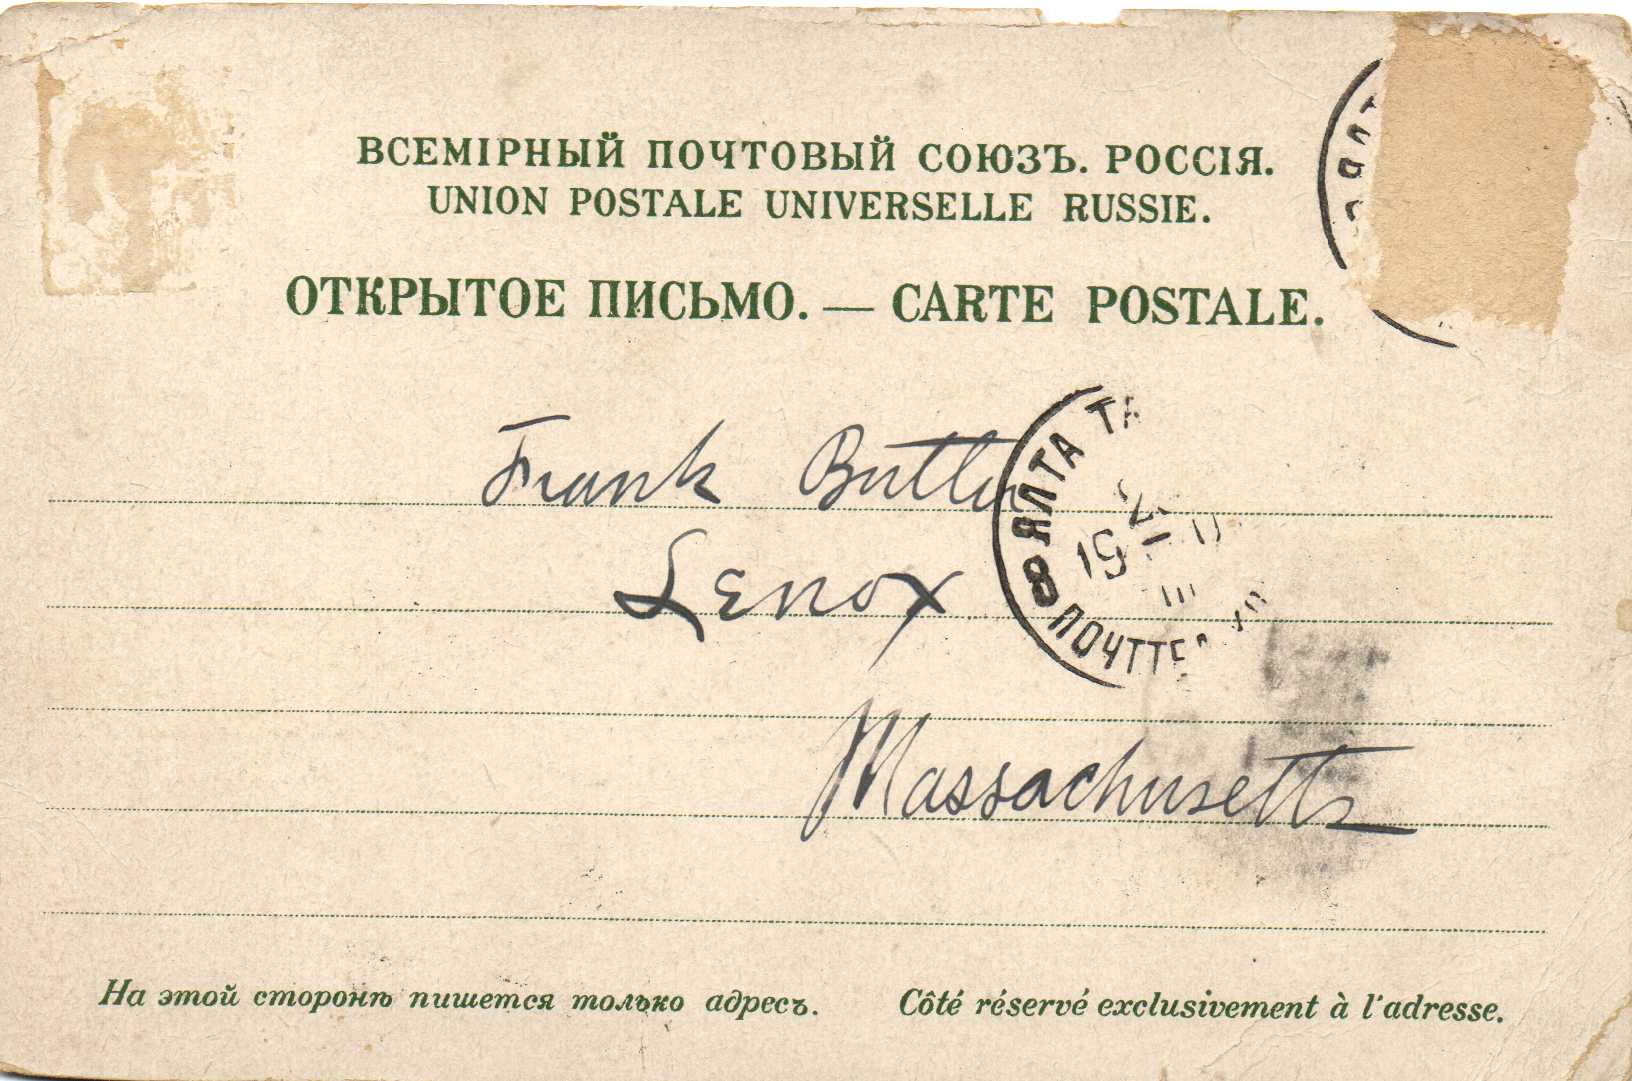 ВСЕМІРНЫЙ ПОЧТОВЫЙ СОЮЗЪ. РОССІЯ.
UNION POSTALE UNIVERSELLE RUSSIE.
ОТКРЫТОЕ ПИСЬМО. — CARTE POSTALE.
Frank Butler
ЯЛТА
19
8
Lenox
Massachusetts
На этой сторонѣ пишется только адресъ.
Côté réservé exclusivement à l'adresse.